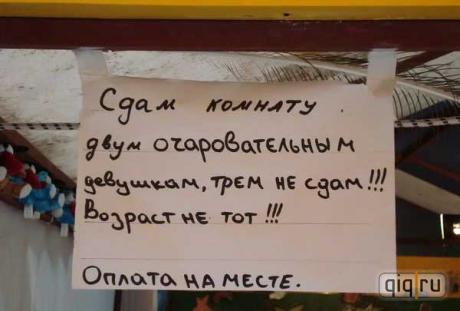 Сдам комнату.
двум очаровательным
девушкам, трем не сдам!!!
Возраст не тот!!!
Оплата на месте.
qiq.ru